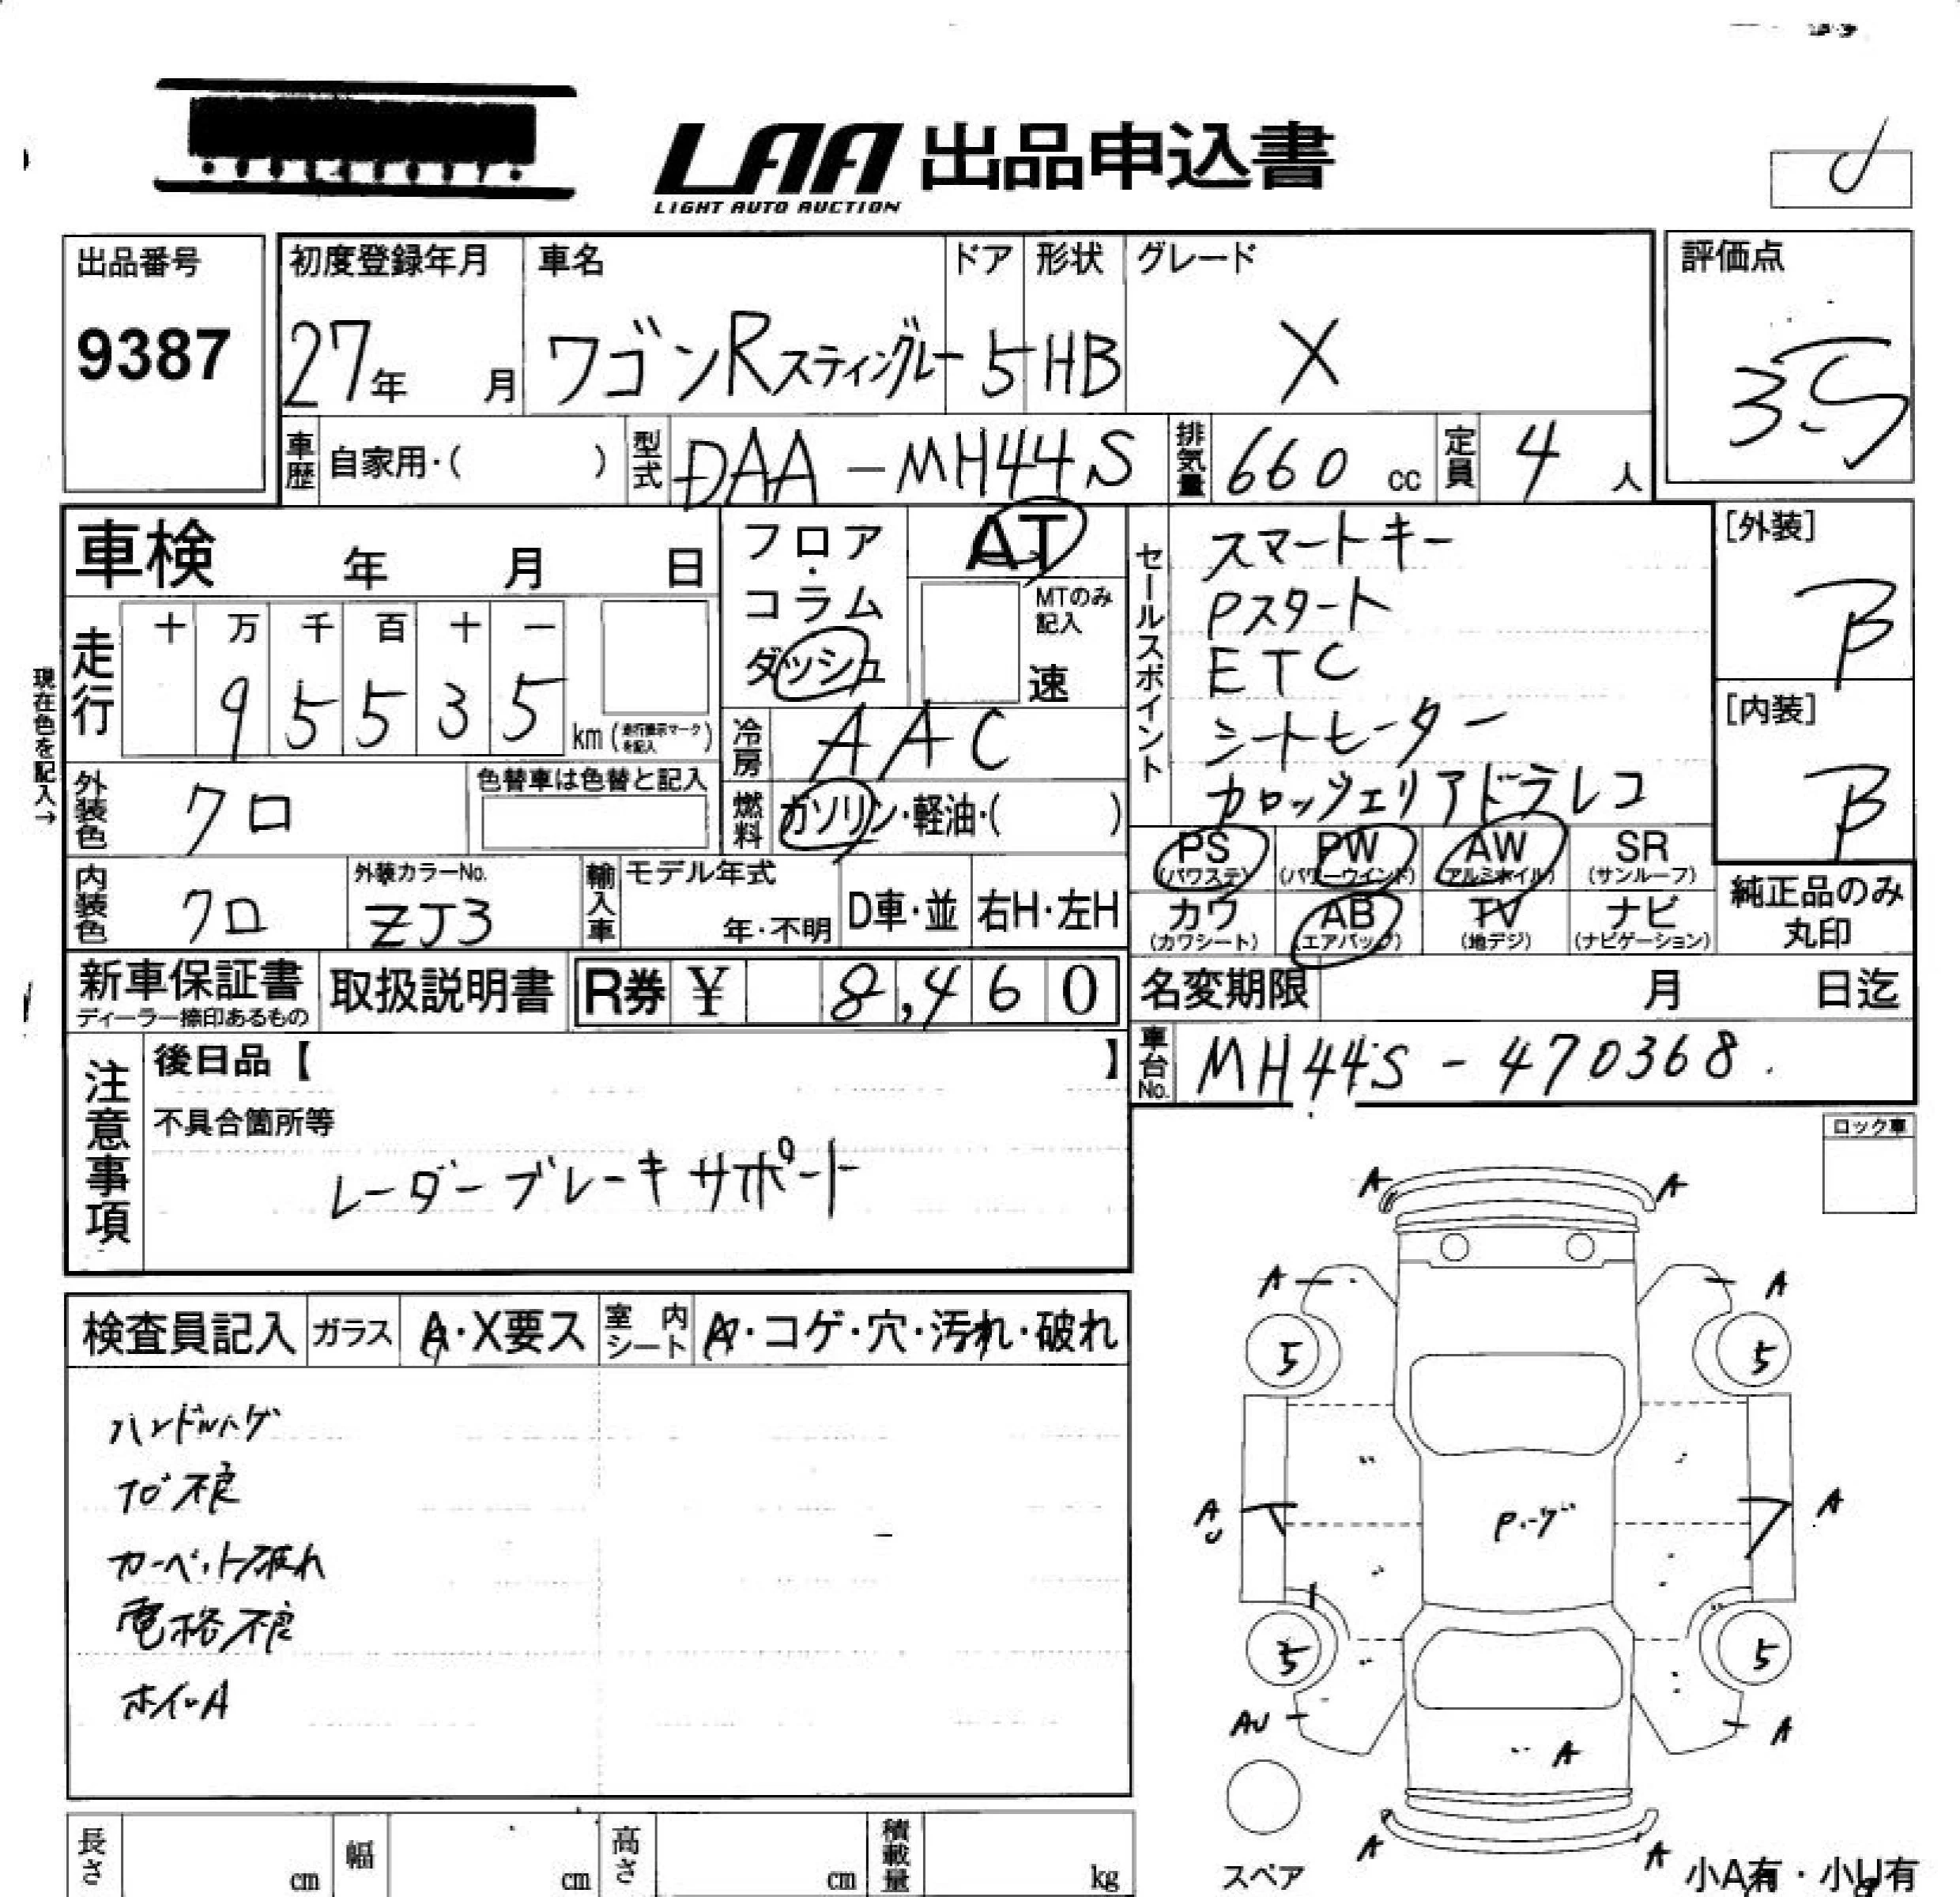 LAA 出品申込書
LIGHT AUTO AUCTION
出品番号
9387
初度登録年月
27年 月
車名
ワゴンRスティングレー
ドア
5
形状
HB
グレード
X
評価点
3.5
車歴 自家用・( )
型式 DAA-MH44S
排気量 660 cc
定員 4 人
車検 年 月 日
フロア・コラム
ダッシュ
AT
MTのみ記入
速
セールスポイント
スマートキー
Pスタート
ETC
シートヒーター
カロッツェリアドラレコ
[外装]
B
[内装]
B
現在色を記入→
走行
十 万 千 百 十 一
9 5 5 3 5
km (走行換示マークを記入)
冷房 AAC
燃料 ガソリン・軽油・( )
外装色 クロ
色替車は色替と記入
内装色 クロ
外装カラーNo.
ZJ3
輸入車
モデル年式
年・不明
D車・並
右H・左H
PS (パワステ)
PW (パワーウインド)
AW (アルミホイル)
SR (サンルーフ)
カワ (カワシート)
AB (エアバッグ)
TV (地デジ)
ナビ (ナビゲーション)
純正品のみ
丸印
新車保証書
ディーラー捺印あるもの
取扱説明書
R券 ¥ 8,460
名変期限 月 日迄
車台No. MH44S-470368
注意事項
後日品【 】
不具合箇所等
レーダーブレーキサポート
ロック車
検査員記入
ガラス A・X要ス
室内シート A・コゲ・穴・汚れ・破れ
ハンドルハゲ
カーペット破れ
電格不良
ホイルA
A A
A A
5 5
A
U
A
5 5
AU A
A
A A
スペア
小A有・小U有
長さ cm
幅 cm
高さ cm
積載量 kg